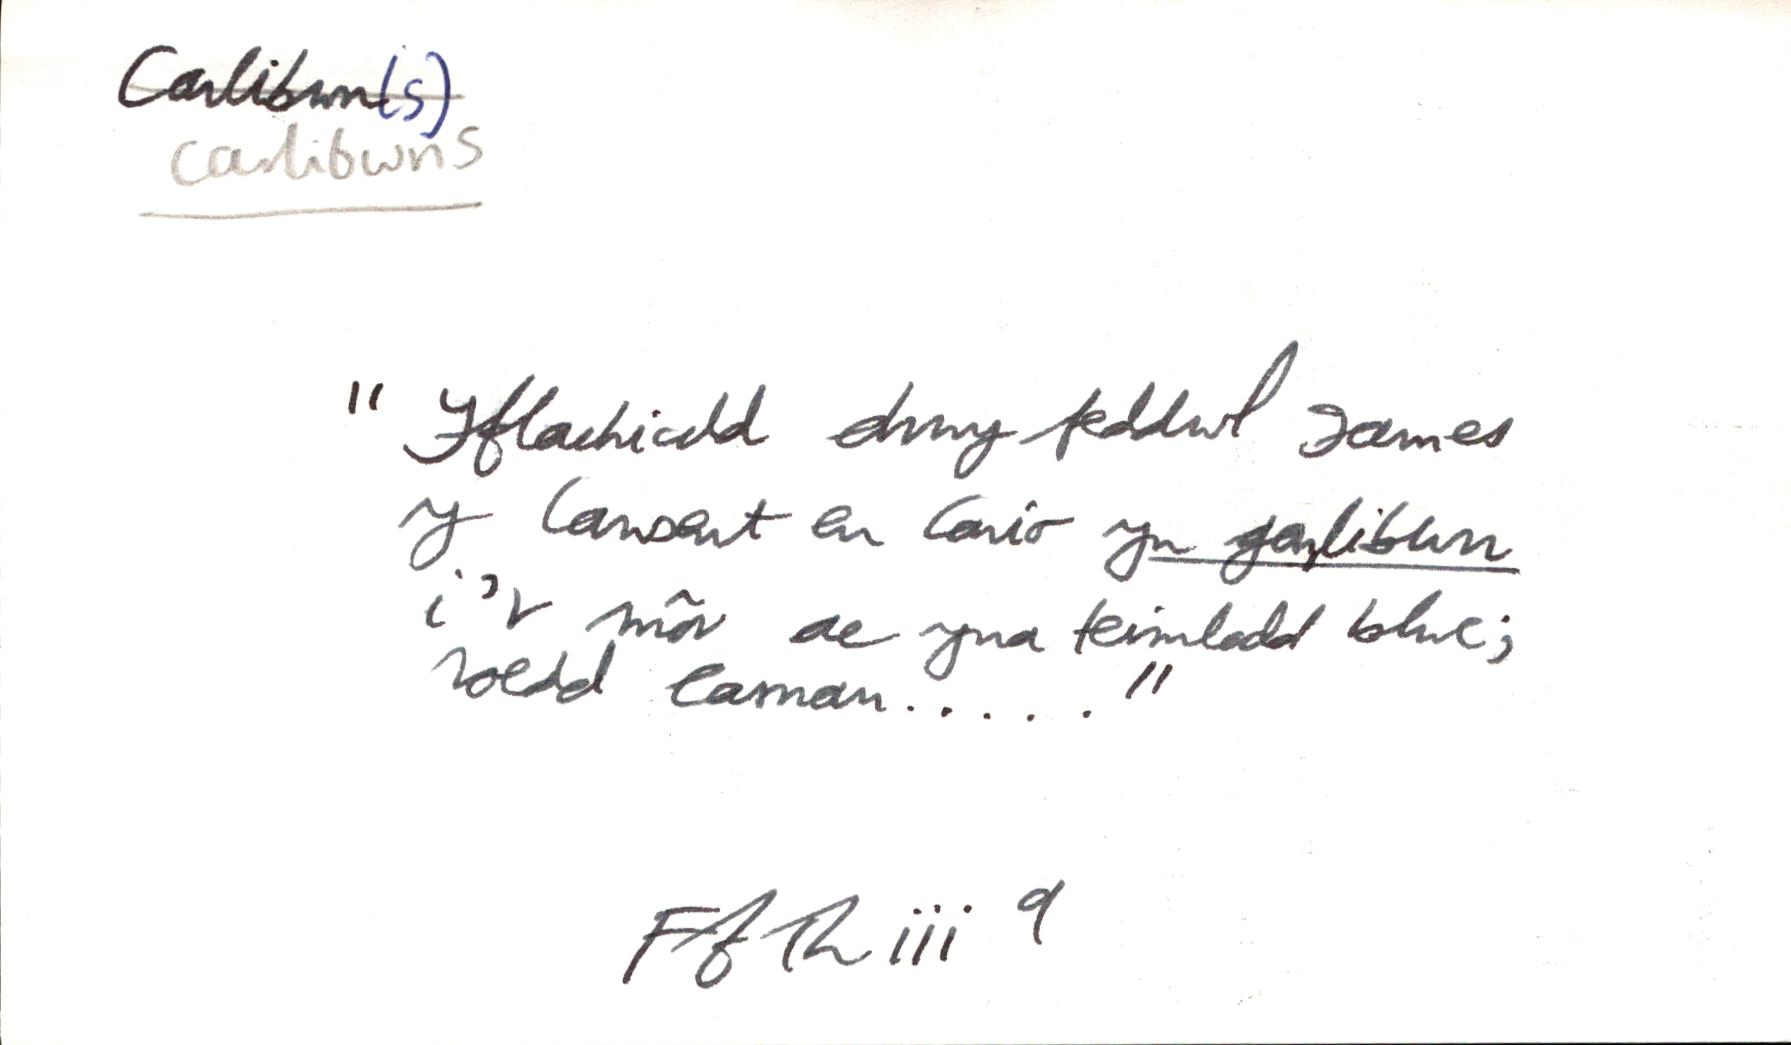 Carlibwn(s)
carlibwns
" Fflachiodd drwy feddwl James
y cawsent eu cario yn garlibwn
i'r môr ac yna teimlodd blwc;
roedd eaman..... "
Ff Th iii 9